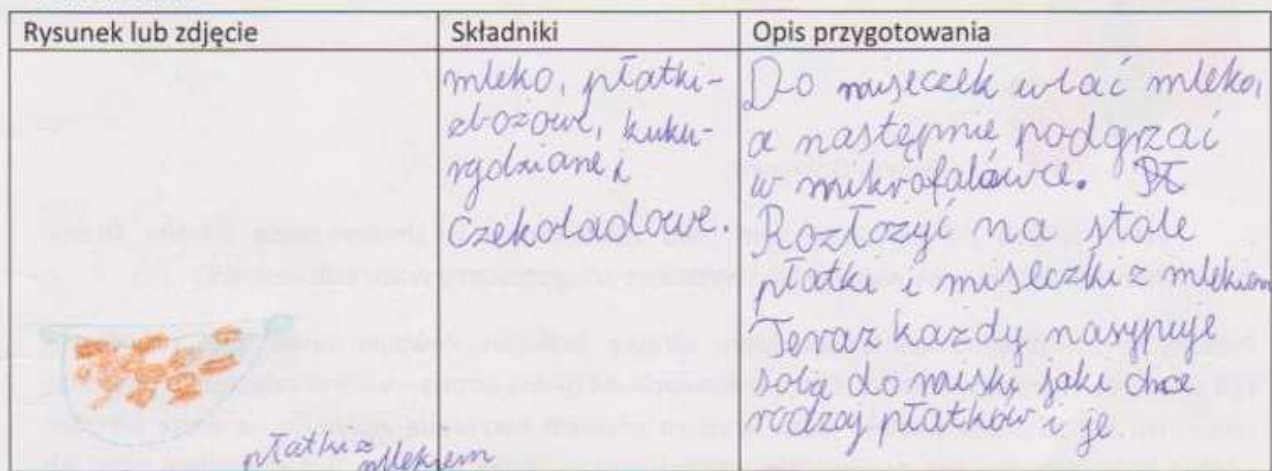 Rysunek lub zdjęcie
Składniki
Opis przygotowania
mleko, płatki-
zbozowe, kuku-
rydziane i
czekoladowe.
Do miseczek wlać mleko,
a następnie podgrzać
w mikrofalówce.
Rozłozyć na stole
płatki i miseczki z mlekiem
Teraz kazdy nasypuje
sobie do miski jaki chce
rodzaj płatków i je
płatki z
mlekiem